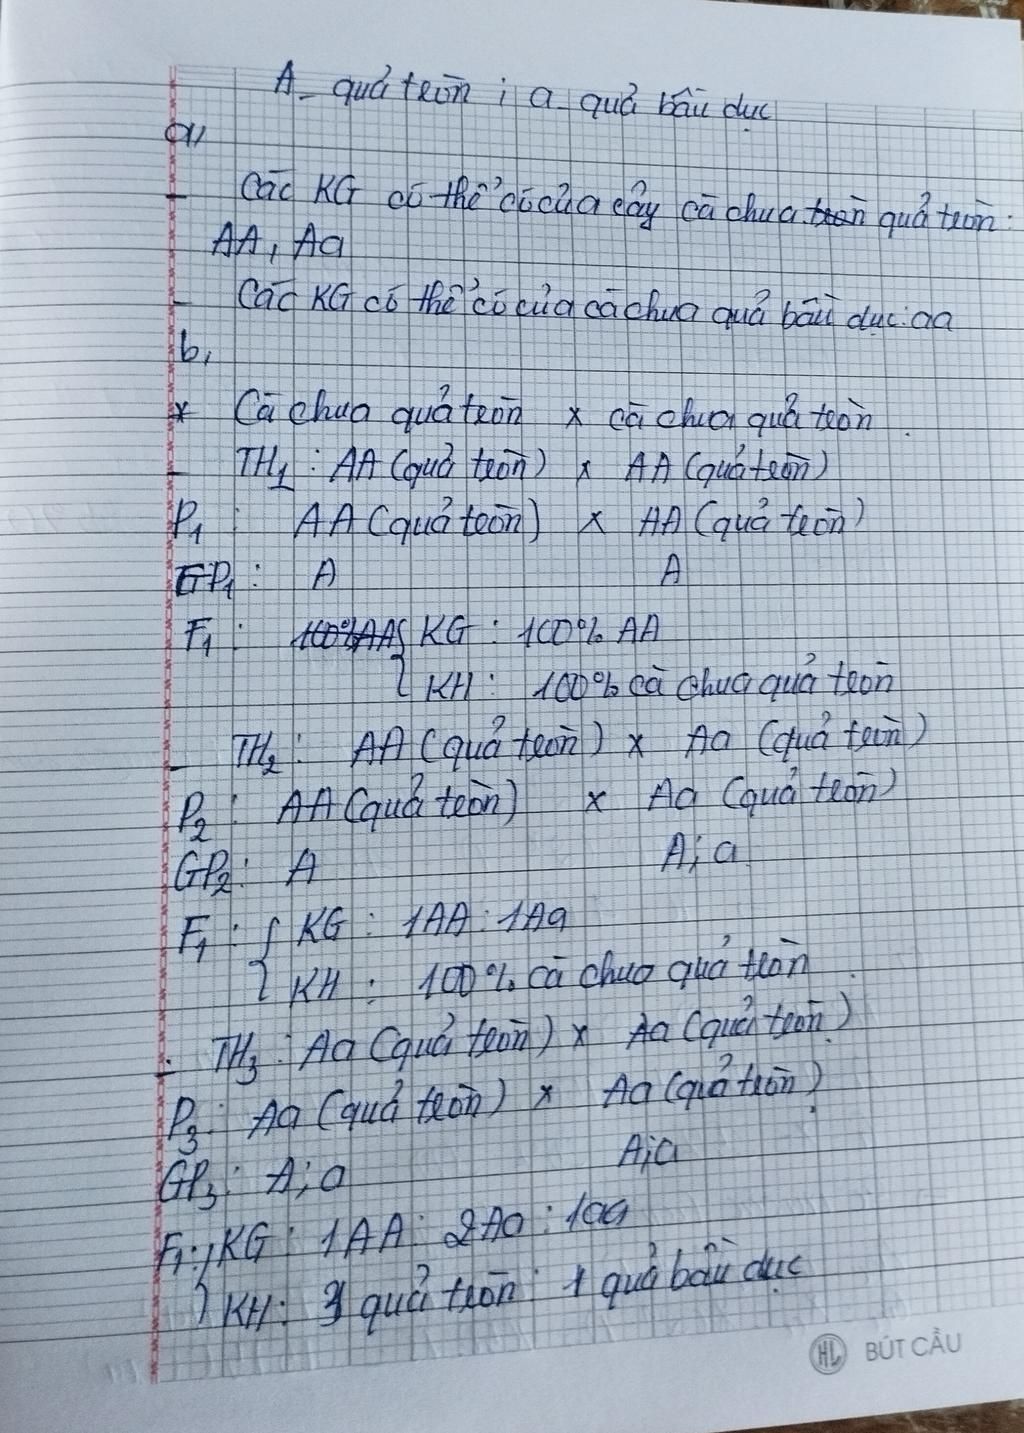 A_ quả tròn ; a_ quả bầu dục
a,
- Các KG có thể có của cây cà chua tròn quả tròn:
AA, Aa
- Các KG có thể có của cà chua quả bầu dục: aa
b,
* Cà chua quả tròn x cà chua quả tròn.
- TH1 : AA (quả tròn) x AA (quả tròn)
P1 : AA (quả tròn) x AA (quả tròn)
GP1 : A A
F1 : 100% AA { KG : 100% AA
KH : 100% cà chua quả tròn
- TH2 : AA (quả tròn) x Aa (quả tròn)
P2 : AA (quả tròn) x Aa (quả tròn)
GP2 : A A; a
F1 : { KG : 1AA : 1Aa
KH : 100% cà chua quả tròn.
- TH3 : Aa (quả tròn) x Aa (quả tròn)
P3 : Aa (quả tròn) x Aa (quả tròn)
GP3 : A; a A; a
F1 : { KG : 1AA : 2Aa : 1aa
KH : 3 quả tròn : 1 quả bầu dục
HL BÚT CẦU